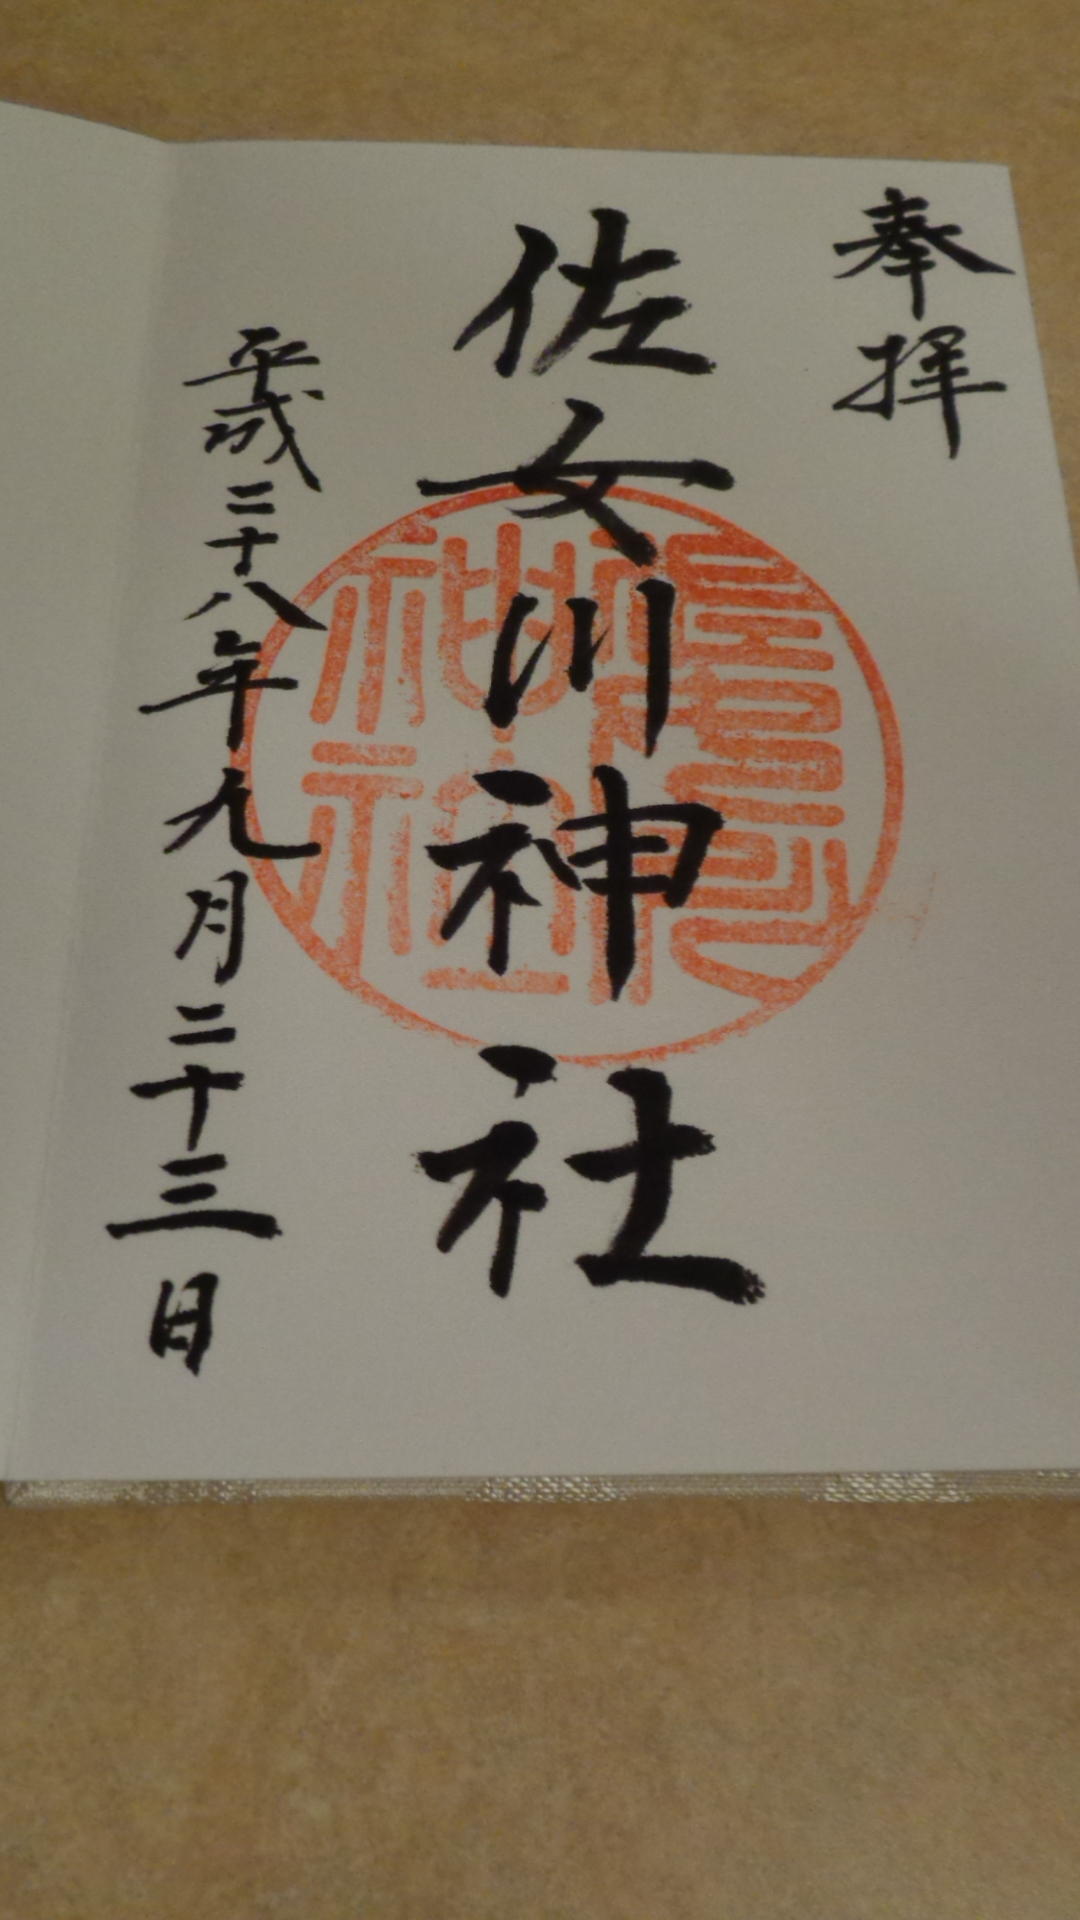 奉拝
佐女川神社
平成二十八年九月二十三日